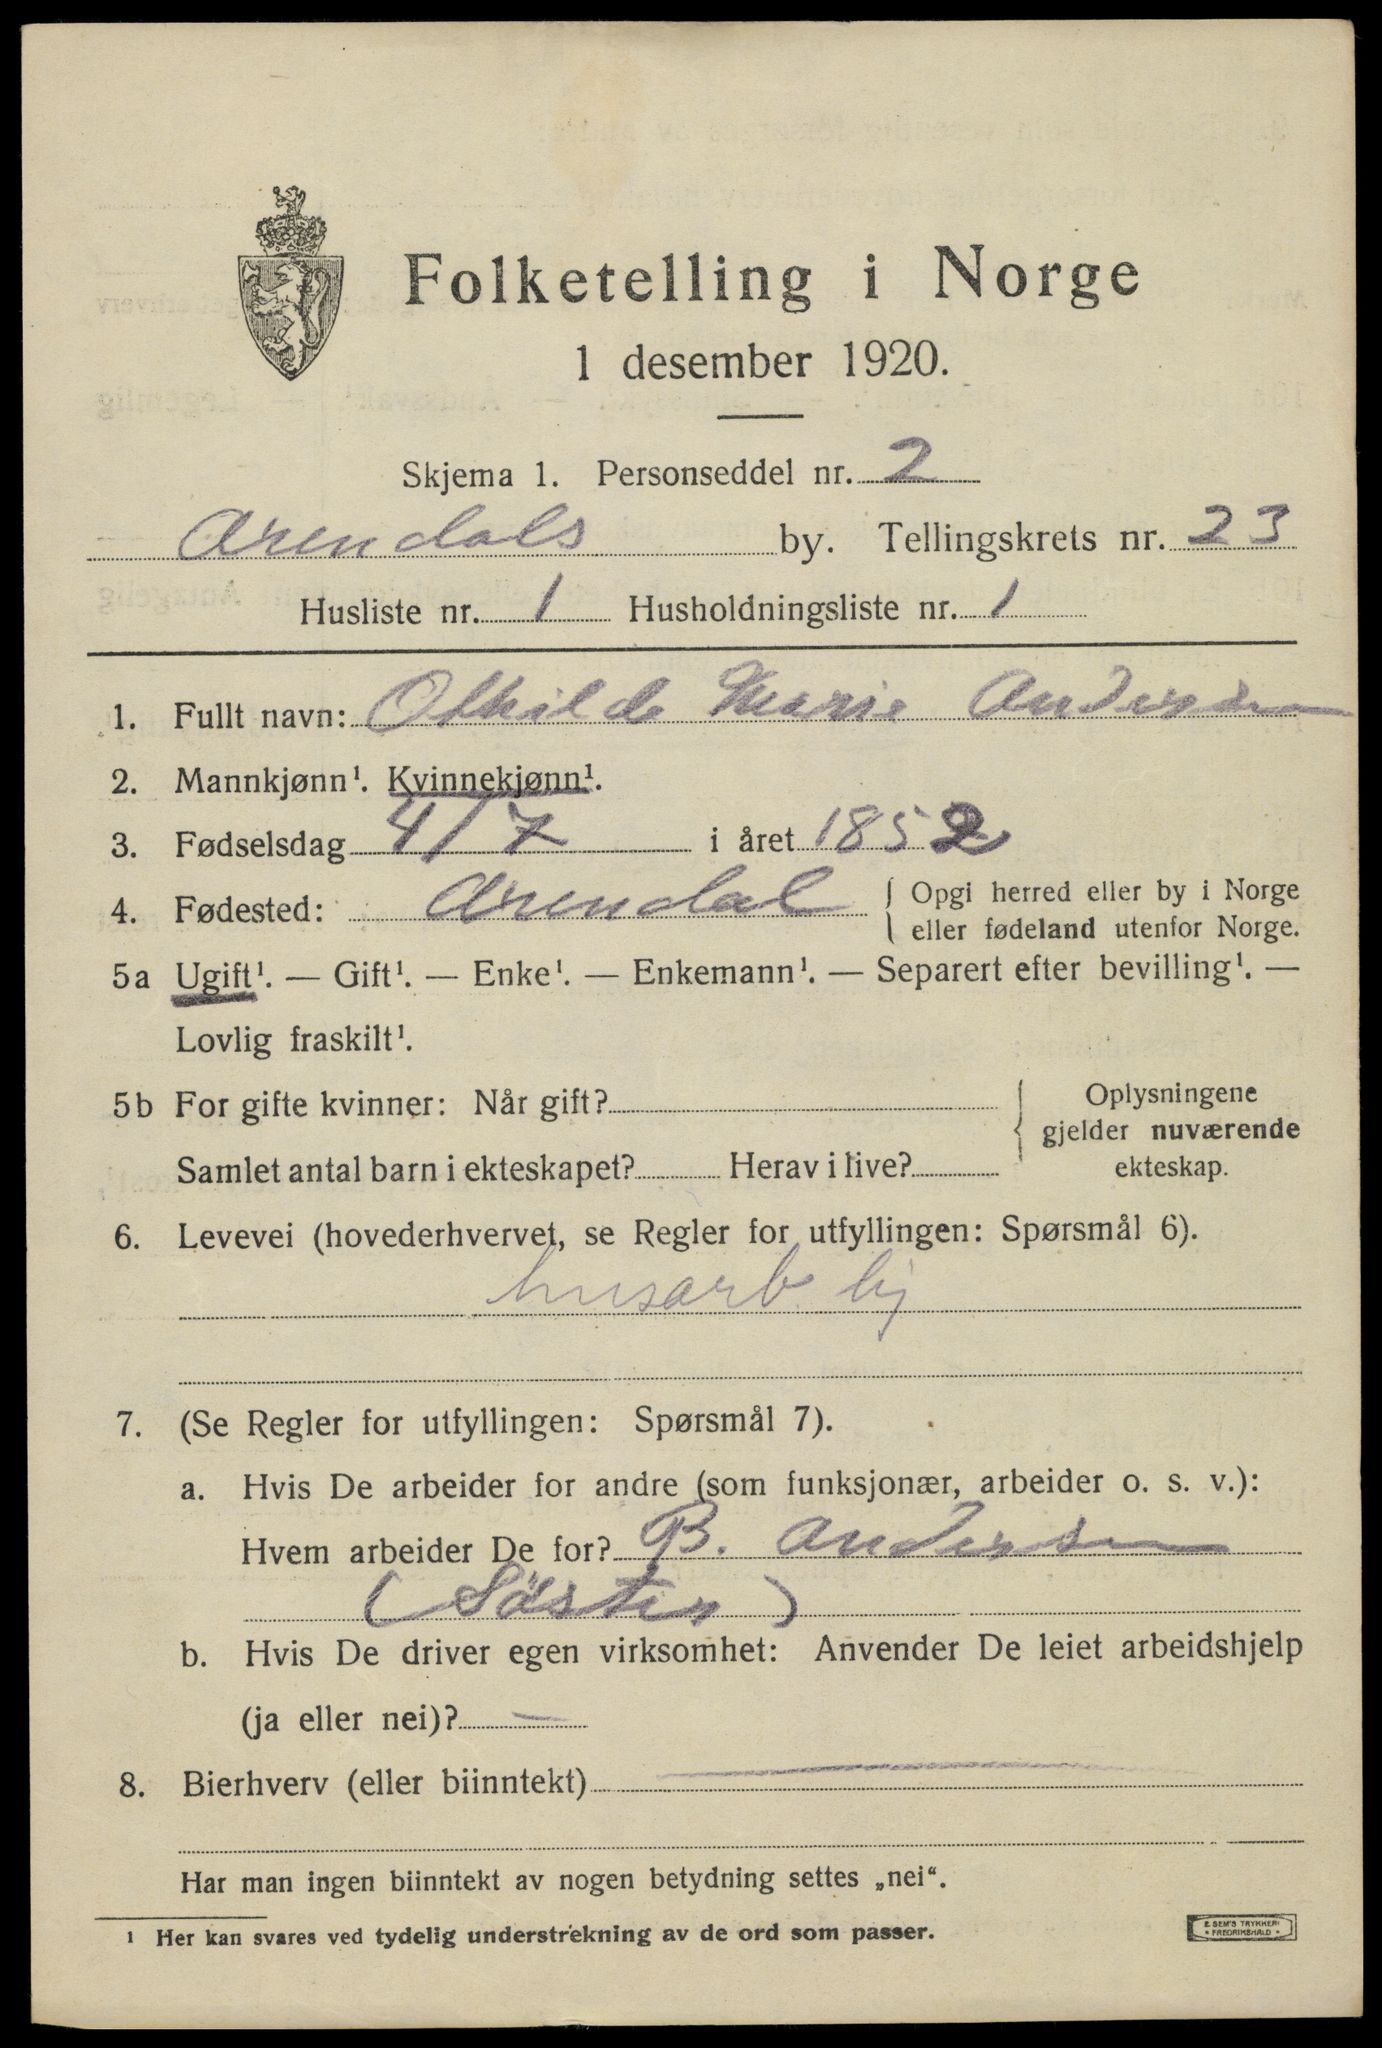 Folketelling i Norge
1 desember 1920.
Skjema 1. Personseddel nr. 2
Arendals by. Tellingskrets nr. 23
Husliste nr. 1 Husholdningsliste nr. 1
1. Fullt navn: Othilde Marie Andersen
2. Mannkjønn¹. Kvinnekjønn¹.
3. Fødselsdag 4/7 i året 1852
4. Fødested: Arendal { Opgi herred eller by i Norge
eller fødeland utenfor Norge.
5a Ugift¹. — Gift¹. — Enke¹. — Enkemann¹. — Separert efter bevilling¹. —
Lovlig fraskilt¹.
5b For gifte kvinner: Når gift? { Oplysningene
gjelder nuværende
Samlet antal barn i ekteskapet? Herav i live? ekteskap.
6. Levevei (hovederhvervet, se Regler for utfyllingen: Spørsmål 6).
husarb. lig
7. (Se Regler for utfyllingen: Spørsmål 7).
a. Hvis De arbeider for andre (som funksjonær, arbeider o. s. v.):
Hvem arbeider De for? B. Andersen
(Söster)
b. Hvis De driver egen virksomhet: Anvender De leiet arbeidshjelp
(ja eller nei)? —
8. Bierhverv (eller biinntekt) —
Har man ingen biinntekt av nogen betydning settes „nei“.
¹ Her kan svares ved tydelig understrekning av de ord som passer.
E SEM'S TRYKKERI
• FREDRIKSHALD •